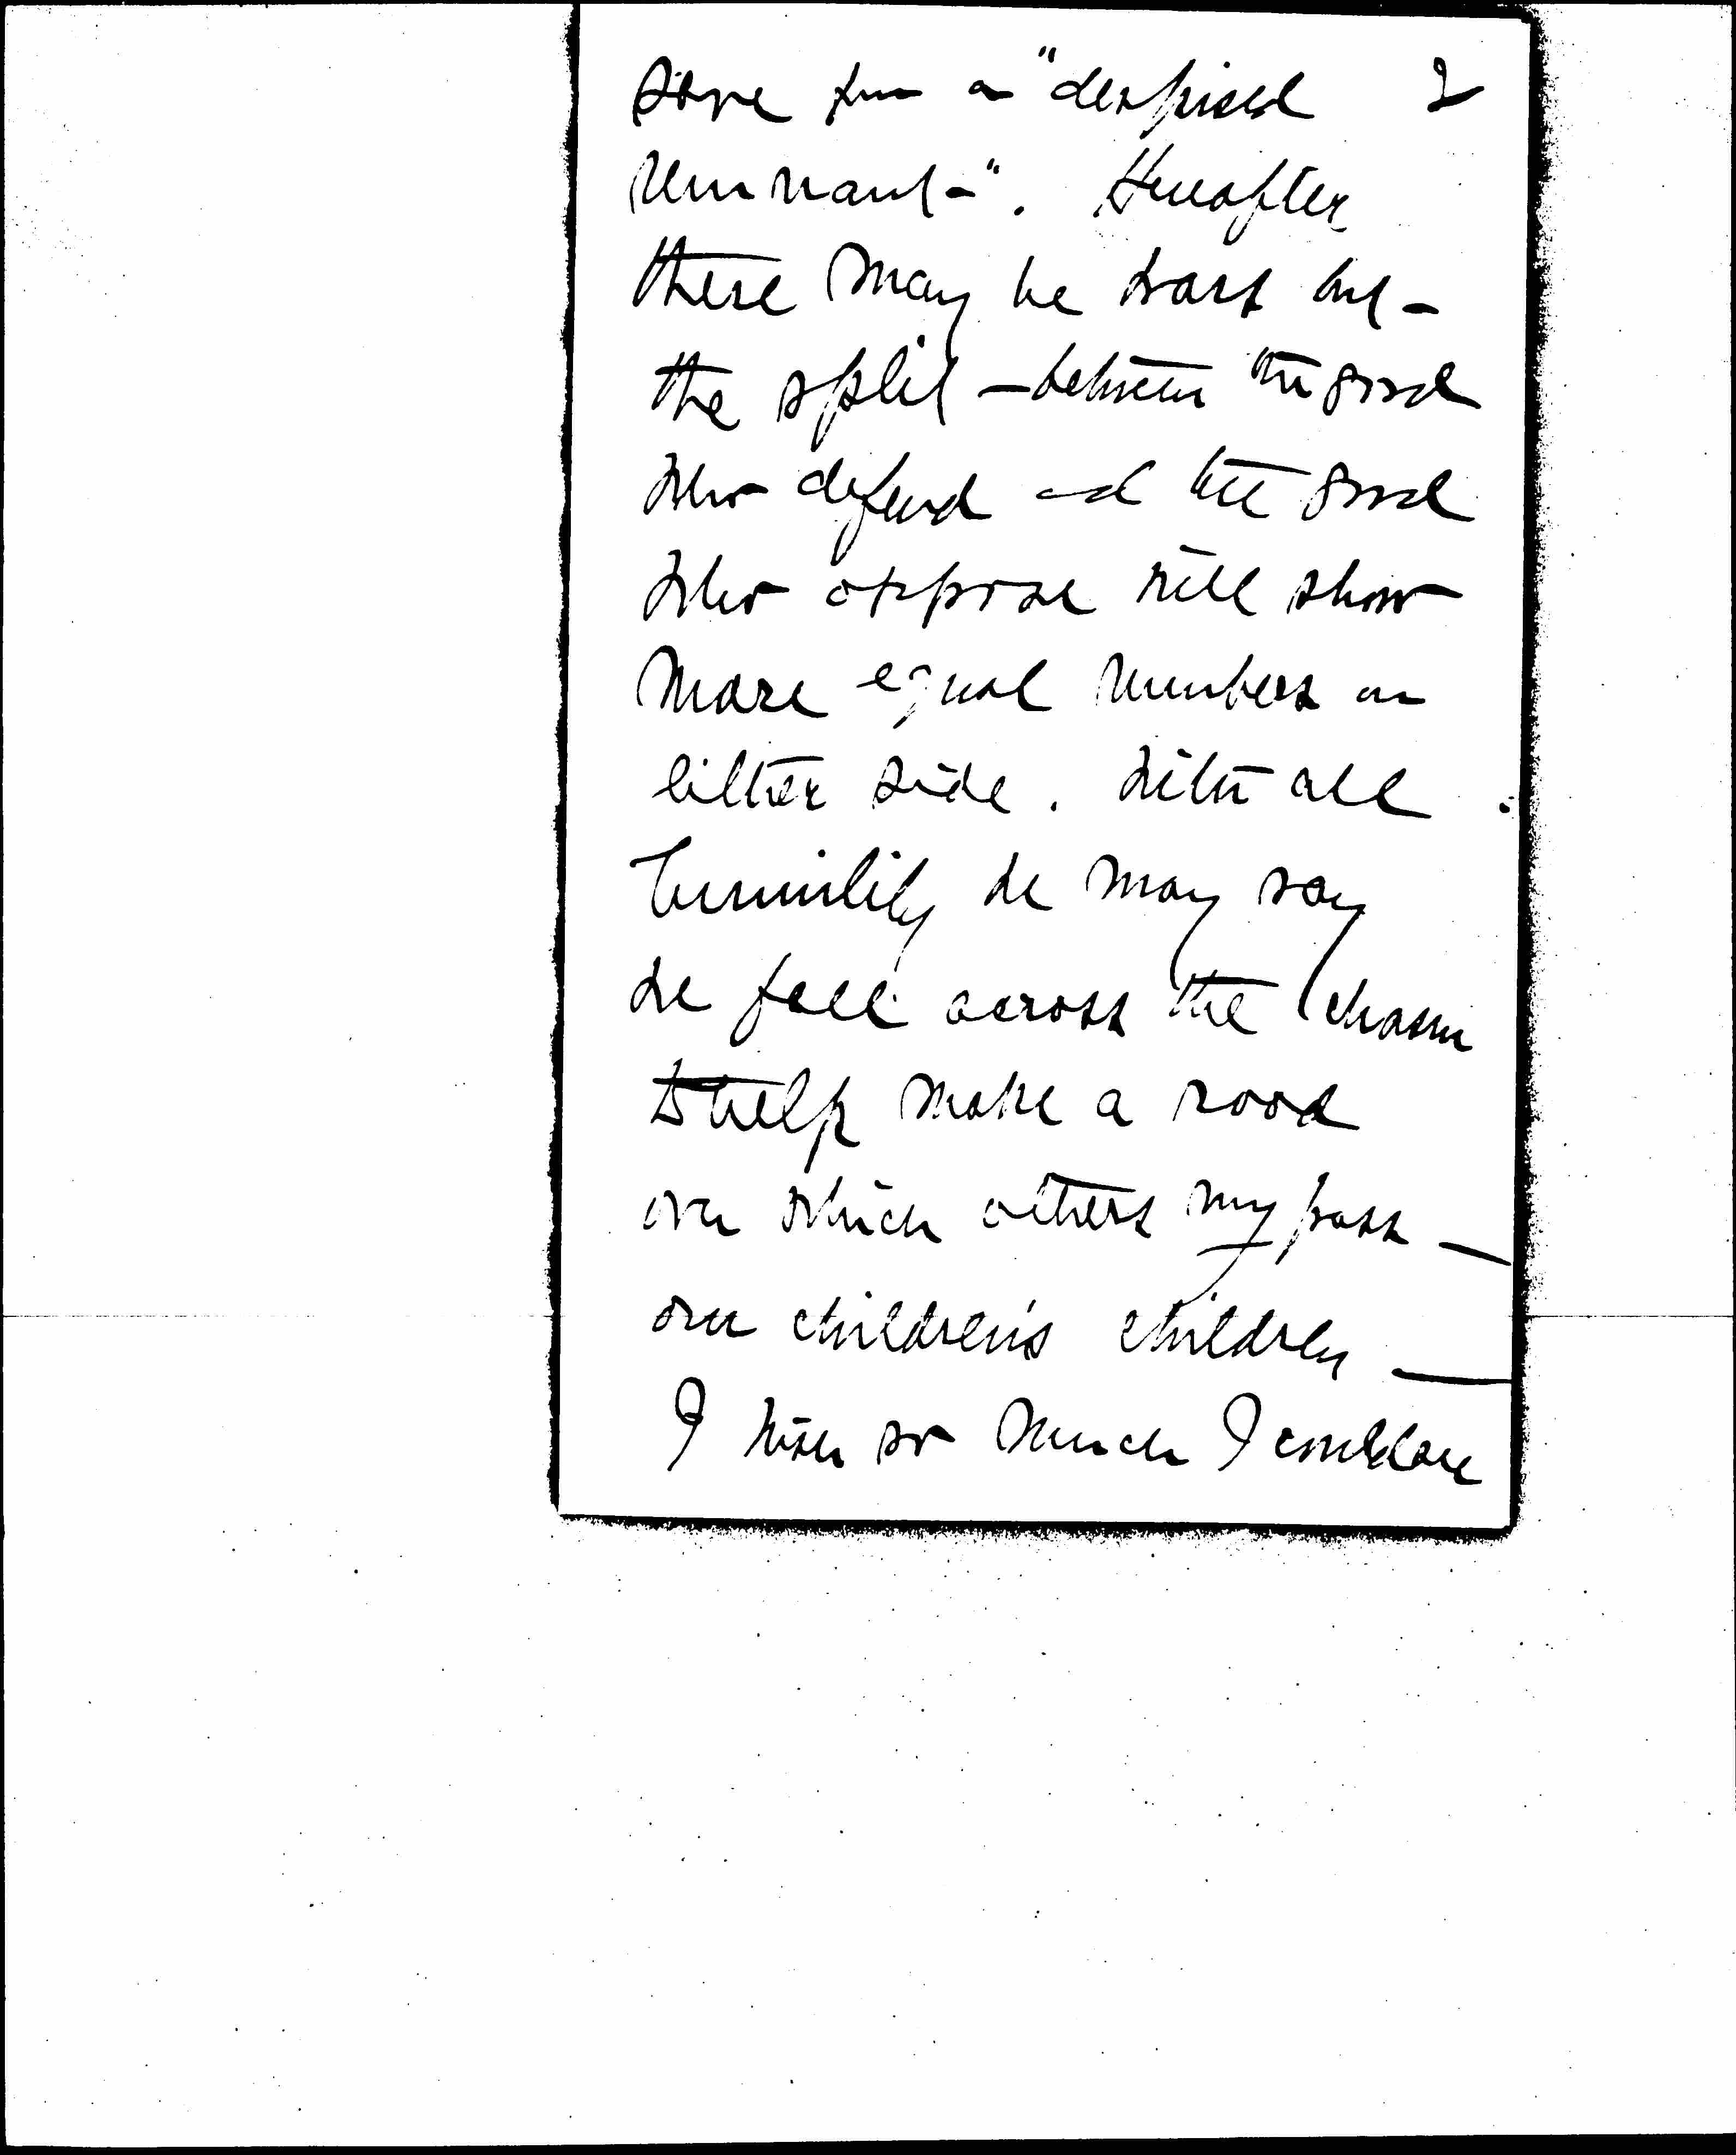 save for a "despised 2
remnant". Hereafter
there may be wars but
the split between the good
who defend and the good
who oppose will show
more equal numbers on
either side. With all
humility we may say
we fell across the chasm
to help make a road
over which others may pass —
our children's children —
I wish so much I could